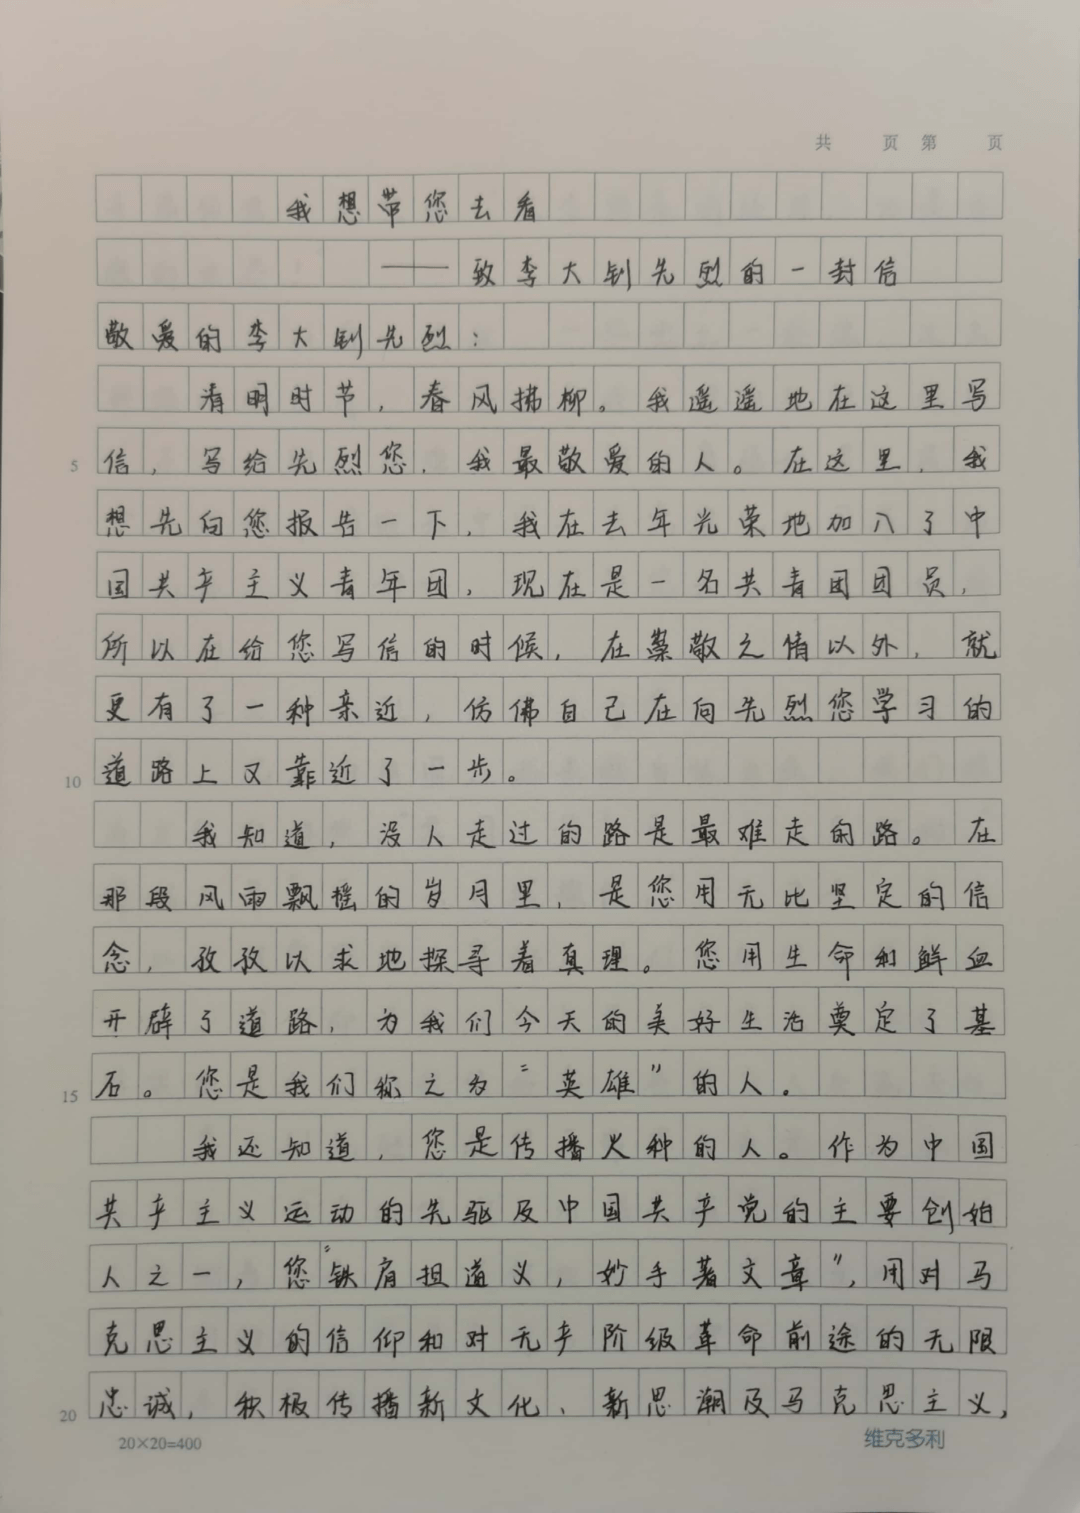 共 页 第 页
我想带您去看
——致李大钊先烈的一封信
敬爱的李大钊先烈：
清明时节，春风拂柳。我遥遥地在这里写
5 信，写给先烈您，我最敬爱的人。在这里，我
想先向您报告一下，我在去年光荣地加入了中
国共产主义青年团，现在是一名共青团团员，
所以在给您写信的时候，在崇敬之情以外，就
更有了一种亲近，仿佛自己在向先烈您学习的
10 道路上又靠近了一步。
我知道，没人走过的路是最难走的路。在
那段风雨飘摇的岁月里，是您用无比坚定的信
念，孜孜以求地探寻着真理。您用生命和鲜血
开辟了道路，为我们今天的美好生活奠定了基
15 石。您是我们称之为“英雄”的人。
我还知道，您是传播火种的人。作为中国
共产主义运动的先驱及中国共产党的主要创始
人之一，您“铁肩担道义，妙手著文章”，用对马
克思主义的信仰和对无产阶级革命前途的无限
20 忠诚，积极传播新文化、新思潮及马克思主义，
20×20=400 维克多利